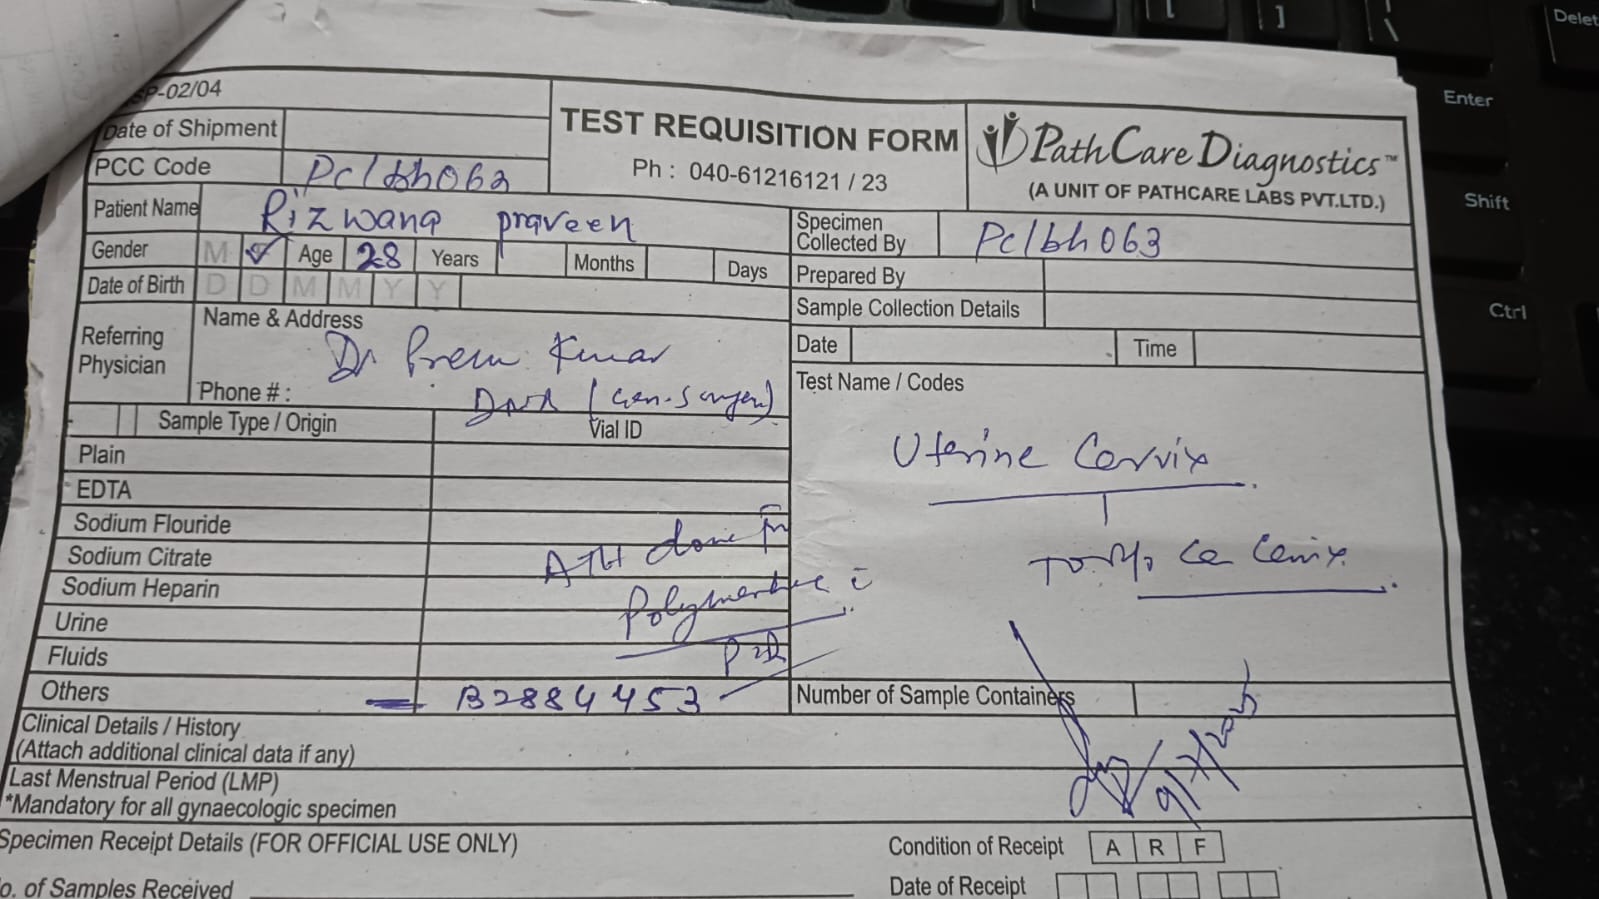 SP-02/04
Date of Shipment
PCC Code Pclbh063
TEST REQUISITION FORM
Ph : 040-61216121 / 23
PathCare Diagnostics™
(A UNIT OF PATHCARE LABS PVT.LTD.)
Patient Name Rizwana praveen
Gender M Age 28 Years Months Days
Date of Birth D D M M Y Y
Specimen Collected By Pclbh063
Prepared By
Sample Collection Details
Date Time
Referring Physician
Name & Address
Dr Prem Kumar
Phone # :
(Gen. Surgeon)
Sample Type / Origin Vial ID
Plain
EDTA
Sodium Flouride
Sodium Citrate
Sodium Heparin
Urine
Fluids
Others B2884453
done for
Test Name / Codes
Uterine Cervix
To R/o Ca Cervix.
Number of Sample Containers
9/7/2025
Clinical Details / History
(Attach additional clinical data if any)
Last Menstrual Period (LMP)
*Mandatory for all gynaecologic specimen
Specimen Receipt Details (FOR OFFICIAL USE ONLY)
Condition of Receipt A R F
No. of Samples Received
Date of Receipt
Delet
Enter
Shift
Ctrl
[
]
\